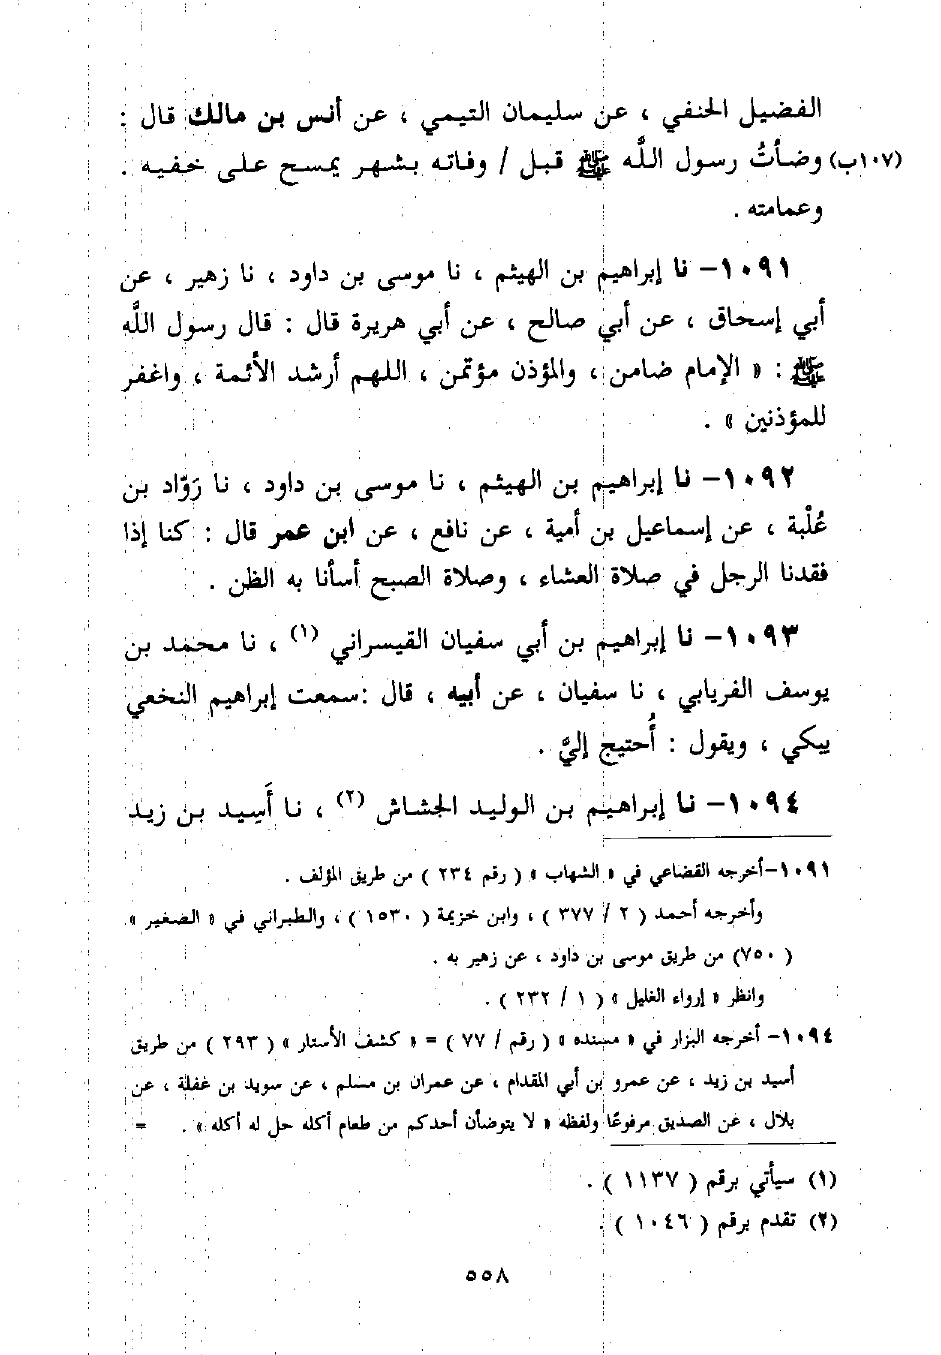 الفضيل الحنفي ، عن سليمان التيمي ، عن أنس بن مالك قال :
(١٠٧ب) وضأتُ رسول اللَّه ﷺ قبل / وفاته بشهر يمسح على خفيه .
وعمامته .
١٠٩١– نا إبراهيم بن الهيثم ، نا موسى بن داود ، نا زهير ، عن
أبي إسحاق ، عن أبي صالح ، عن أبي هريرة قال : قال رسول اللَّه
ﷺ : « الإمام ضامن ، والمؤذن مؤتمن ، اللهم أرشد الأئمة ، واغفر
للمؤذنين » .
١٠٩٢– نا إبراهيم بن الهيثم ، نا موسى بن داود ، نا رَوّاد بن
عُلْبة ، عن إسماعيل بن أمية ، عن نافع ، عن ابن عمر قال : كنا إذا
فقدنا الرجل في صلاة العشاء ، وصلاة الصبح أسأنا به الظن .
١٠٩٣– نا إبراهيم بن أبي سفيان القيسراني (١) ، نا محمد بن
يوسف الفريابي ، نا سفيان ، عن أبيه ، قال :سمعت إبراهيم النخعي
يبكي ، ويقول : أُحتيج إليَّ .
١٠٩٤– نا إبراهيم بن الوليد الجشاش (٢) ، نا أَسِيد بن زيد
١٠٩١–أخرجه القضاعي في « الشهاب » ( رقم ٢٣٤ ) من طريق المؤلف .
وأخرجه أحمد ( ٢ / ٣٧٧ ) ، وابن خزيمة ( ١٥٣٠ ) ، والطبراني في « الصغير »
( ٧٥٠) من طريق موسى بن داود ، عن زهير به .
وانظر « إرواء الغليل » ( ١ / ٢٣٢ ) .
١٠٩٤– أخرجه البزار في « مسنده » ( رقم / ٧٧ ) = « كشف الأستار » ( ٢٩٣ ) من طريق
أسيد بن زيد ، عن عمرو بن أبي المقدام ، عن عمران بن مسلم ، عن سويد بن غفلة ، عن
بلال ، عن الصديق مرفوعًا ولفظه « لا يتوضأن أحدكم من طعام أكله حل له أكله » . =
(١) سيأتي برقم ( ١١٣٧ ) .
(٢) تقدم برقم ( ١٠٤٦ ) .
٥٥٨